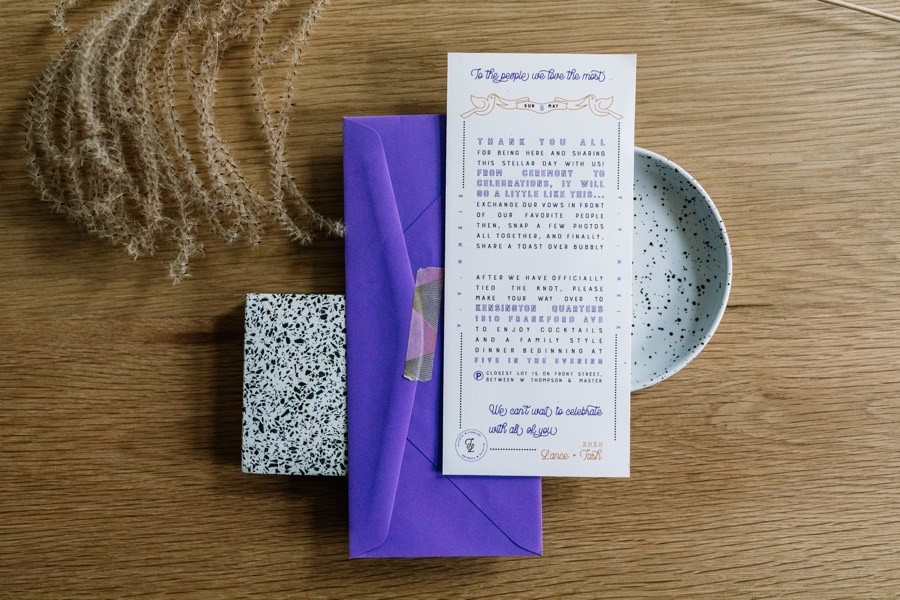 To the people we love the most
SUN & MAY
THANK YOU ALL
FOR BEING HERE AND SHARING
THIS STELLAR DAY WITH US!
FROM CEREMONY TO
CELEBRATIONS, IT WILL
GO A LITTLE LIKE THIS...
EXCHANGE OUR VOWS IN FRONT
OF OUR FAVORITE PEOPLE
THEN, SNAP A FEW PHOTOS
ALL TOGETHER, AND FINALLY,
SHARE A TOAST OVER BUBBLY
AFTER WE HAVE OFFICIALLY
TIED THE KNOT, PLEASE
MAKE YOUR WAY OVER TO
KENSINGTON QUARTERS
1310 FRANKFORD AVE
TO ENJOY COCKTAILS
AND A FAMILY STYLE
DINNER BEGINNING AT
FIVE IN THE EVENING
P CLOSEST LOT IS ON FRONT STREET,
BETWEEN W THOMPSON & MASTER
We can't wait to celebrate
with all of you
XOXO
Lance + Tash